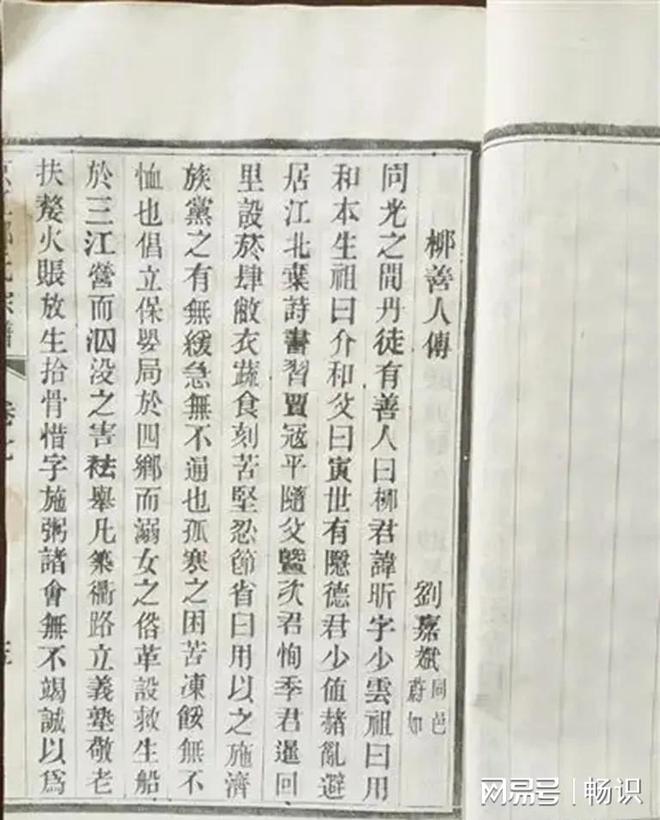 柳善人傳
劉嘉斌同邑蔚如
同光之間丹徒有善人曰柳君諱昕字少雲祖曰用
和本生祖曰介和父曰寅世有隱德君少值赭亂避
居江北棄詩書習賈冠平隨父暨次君恂季君暹回
里設菸肆敝衣蔬食刻苦堅忍節省日用以之施濟
族黨之有無緩急無不通也孤寒之困苦凍餒無不
恤也倡立保嬰局於四鄉而溺女之俗革設救生船
於三江營而泅没之害祛舉凡築衢路立義塾敬老
扶嫠火賬放生拾骨惜字施粥諸會無不竭誠以爲
氏宗譜
卷七
网易号 | 畅识